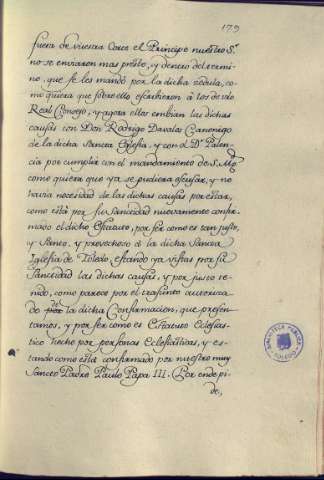 179
fuera de vuestra Corte el Principe nuestro S.r
no se enviaron mas presto, y dentro del termi-
no, que se les mandó por la dicha zedula, co-
mo quiera que sobre ello escribieron á los de vro
Real Consejo, y agora ellos embian las dichas
causas con Don Rodrigo Davalos Canonigo
de la dicha Sancta Iglesia, y con el D.r Palen-
cia por cumplir con el mandamiento de S. Mg.
como quiera que ya se pudiera escusar, y no
havia necesidad de las dichas causas por estar,
como está por su Sanctidad nuevamente confir-
mado el dicho Estatuto, por ser como es tan justo,
y Sancto, y provechoso á la dicha Sancta
Iglesia de Toledo, estando ya vistas por su
Sanctidad las dichas causas, y por justo te-
nido, como parece por el trasunto autoriza-
do de la dicha Confirmacion, que presen-
tamos, y por ser como es Estatuto Eclesias-
tico hecho por personas Eclesiasticas, y es-
tando como está confirmado por nuestro muy
Sancto Padre Paulo Papa III. Por ende pi-
de,
BIBLIOTECA PUBLICA
TOLEDO